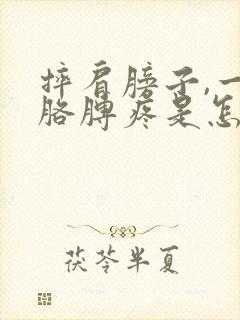 摔肩膀子,一
胳脾疼是怎
茯苓半夏